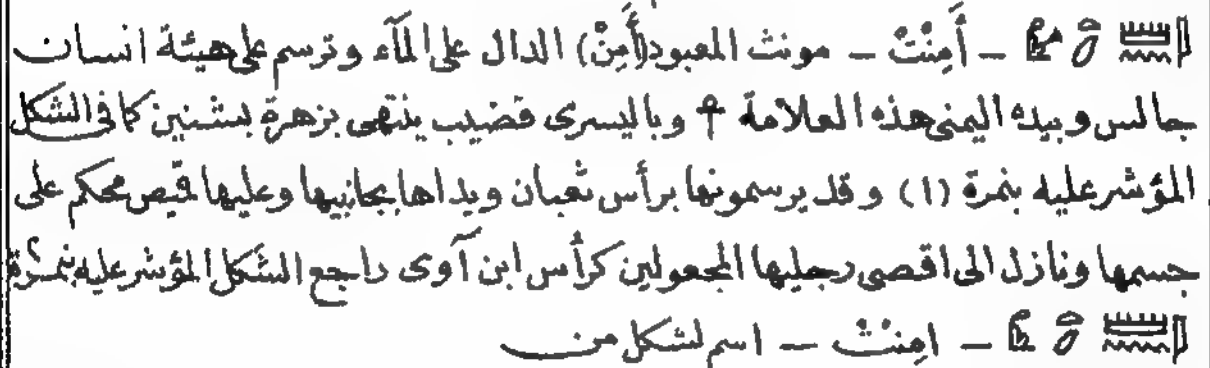 𓇋𓏠𓈖 – أَمِنْتْ – مونث المعبود (أَمِنْ) الدال على المآء وترسم على هيئة انسان
جالس وبيده اليمنى هذه العلامة ☥ وباليسرى قضيب ينتهى بزهرة بشنين كما فى الشكل
المؤشر عليه بنمرة (١) وقد يرسمونها برأس ثعبان ويداها بجانبيها وعليها قميص محكم على
جسمها ونازل الى اقصى رجليها المجعولين كرأس ابن آوى راجع الشكل المؤشر عليه بنمرة
𓇋𓏠𓈖 – امِنْتْ – اسم لشكل من